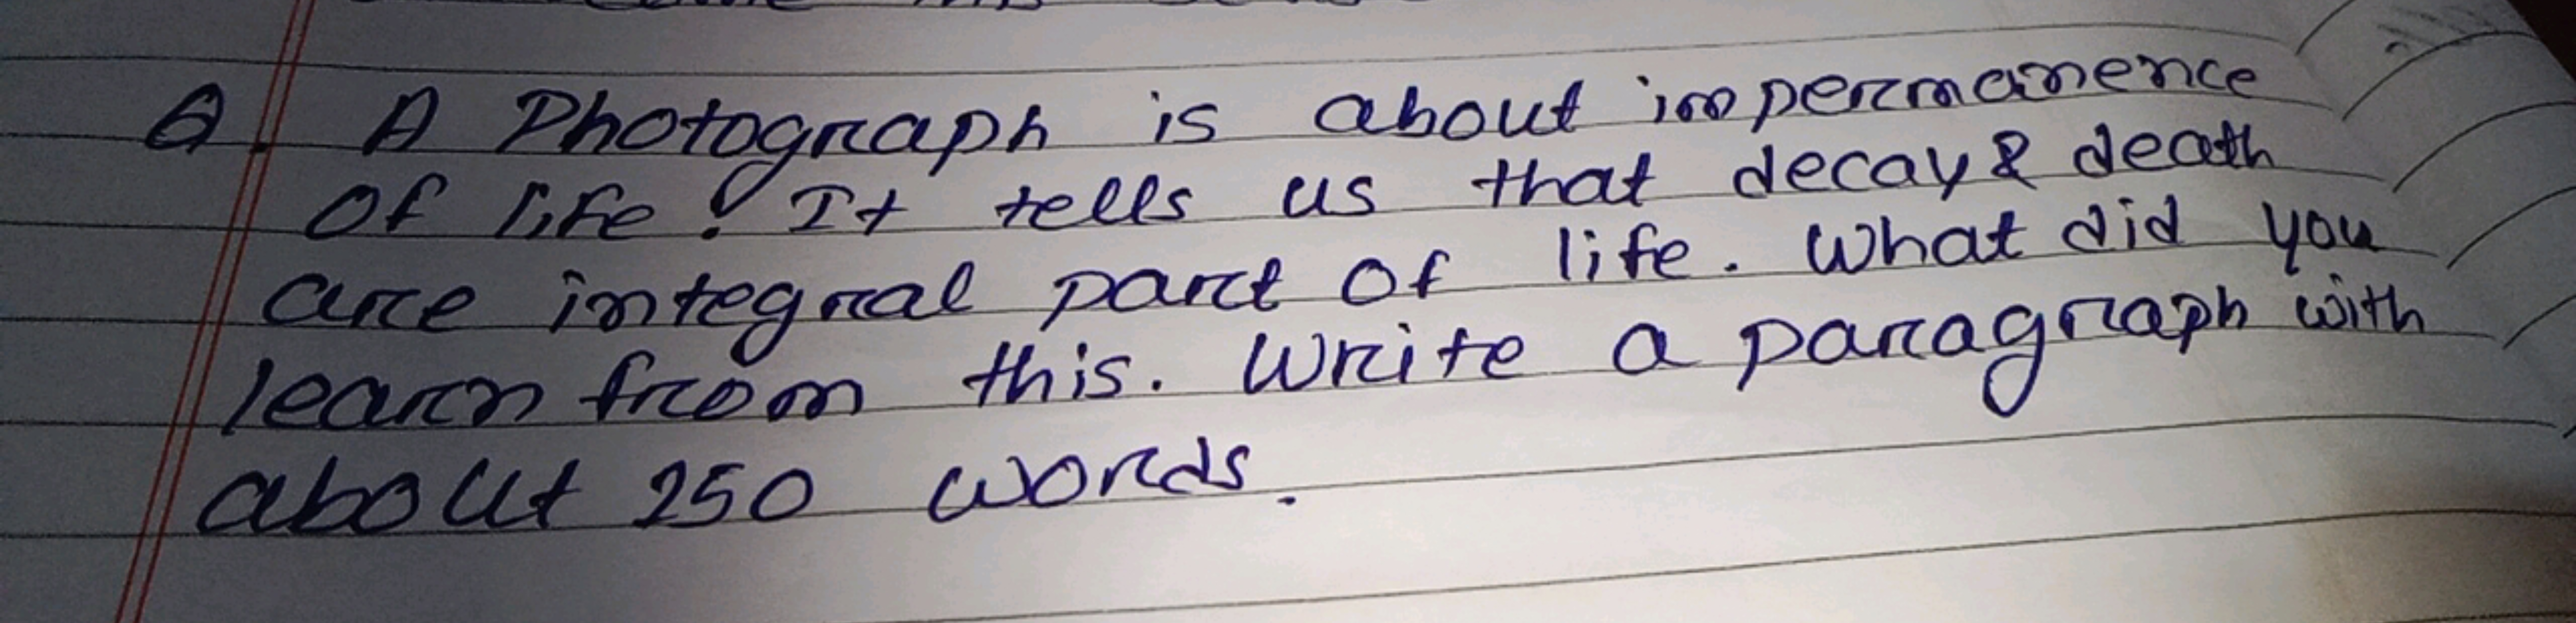 Q. A Photograph is about impermanence
of life! It tells us that decay & death
are integral part of life. What did you
learn from this. Write a paragraph with
about 250 words.